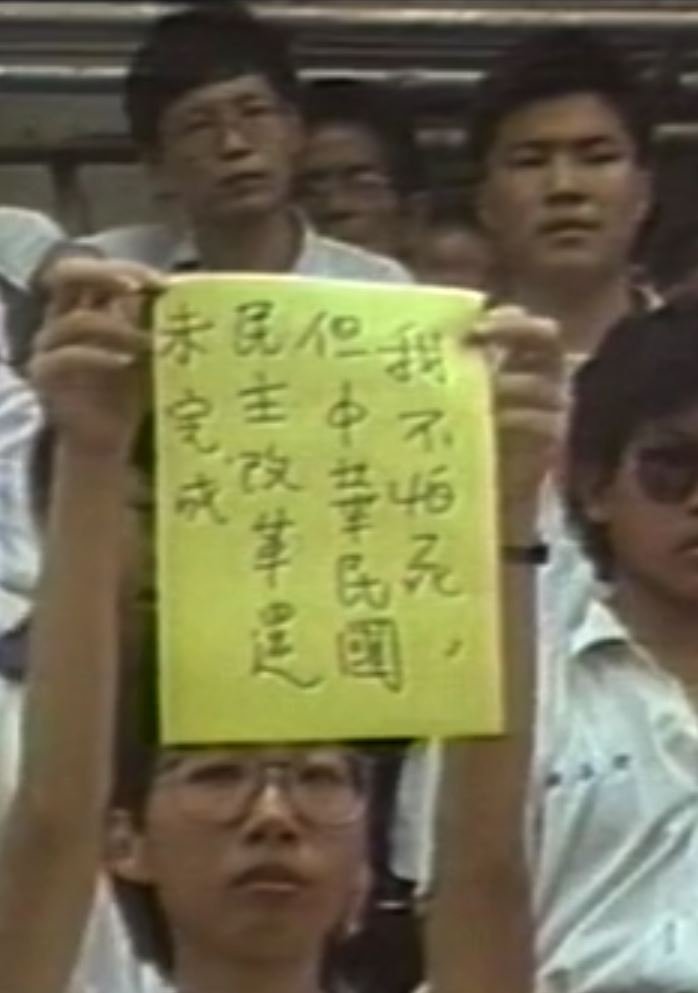 我不怕死，
但中華民國
民主改革還
未完成